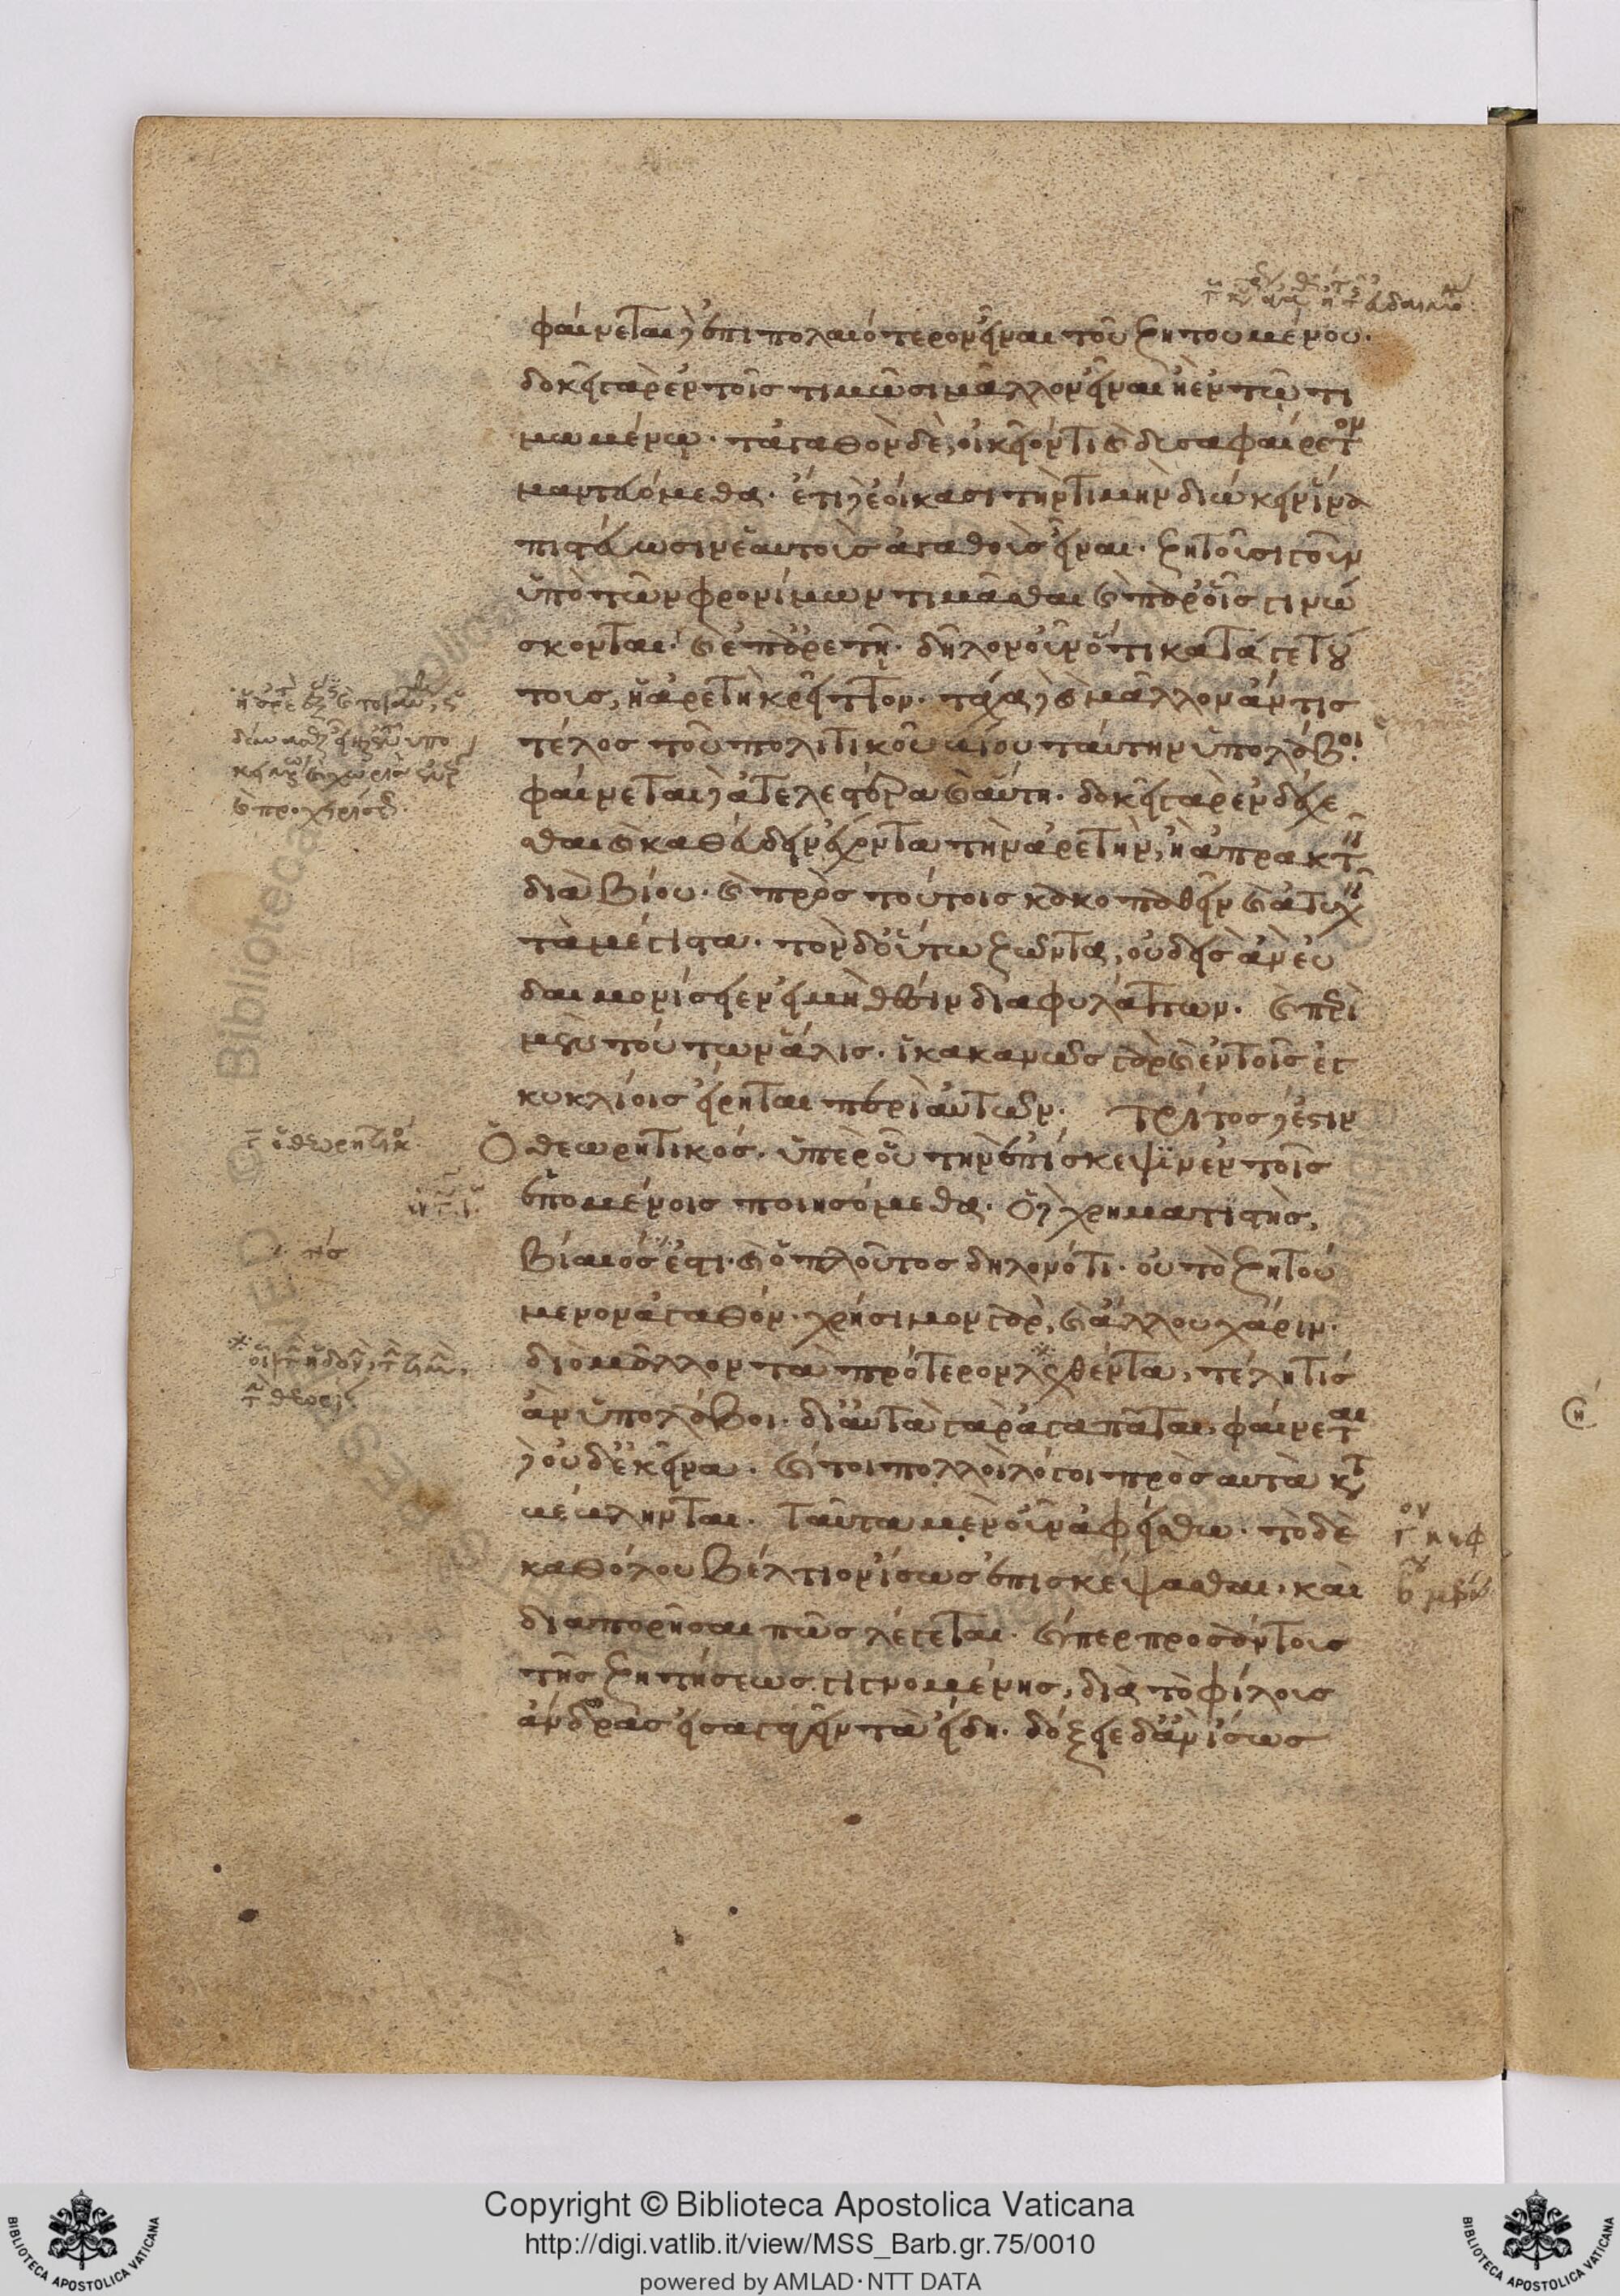 φαίνεται δ' ἐπιπολαιότερον εἶναι τοῦ ζητουμένου.
δοκεῖ γὰρ ἐν τοῖς τιμῶσι μᾶλλον εἶναι ἢ ἐν τῷ τι
μωμένῳ. τἀγαθὸν δὲ, οἰκεῖόν τι καὶ δυσαφαίρετον
μαντευόμεθα. ἔτι δ' ἐοίκασι τὴν τιμὴν διώκειν ἵνα
πιστεύωσιν ἑαυτοὺς ἀγαθοὺς εἶναι. ζητοῦσι γοῦν
ὑπὸ τῶν φρονίμων τιμᾶσθαι καὶ παρ' οἷς γινώ
σκονται. καὶ ἐπ' ἀρετῇ. δῆλον οὖν ὅτι κατά γε τού
τους, ἡ ἀρετὴ κρεῖττον. τάχα δὲ καὶ μᾶλλον ἄν τις
τέλος τοῦ πολιτικοῦ βίου ταύτην ὑπολάβοι.
φαίνεται δ' ἀτελεστέρα καὶ αὕτη. δοκεῖ γὰρ ἐνδέχε
σθαι καὶ καθεύδειν ἔχοντα τὴν ἀρετὴν, ἢ ἀπρακτεῖν
διὰ βίου. καὶ πρὸς τούτοις κακοπαθεῖν καὶ ἀτυχεῖν
τὰ μέγιστα. τὸν δ' οὕτω ζῶντα, οὐδεὶς ἂν εὐ
δαιμονίσειεν εἰ μὴ θέσιν διαφυλάττων. καὶ περὶ
μὲν τούτων ἅλις. ἱκανῶς γὰρ καὶ ἐν τοῖς ἐγ
κυκλίοις εἴρηται περὶ αὐτῶν. τρίτος δ' ἐστὶν
ὁ θεωρητικός. ὑπὲρ οὗ τὴν ἐπίσκεψιν ἐν τοῖς
ἑπομένοις ποιησόμεθα. ὁ δὲ χρηματιστὴς,
βίαιός ἐστι. καὶ ὁ πλοῦτος δηλονότι. οὐ τὸ ζητού
μενον ἀγαθόν. χρήσιμον γὰρ, καὶ ἄλλου χάριν.
διὸ μᾶλλον τὰ πρότερον λεχθέντα, τέλη τις
ἂν ὑπολάβοι. δι' αὑτὰ γὰρ ἀγαπᾶται. φαίνεται
δ' οὐδ' ἐκεῖνα. καίτοι πολλοὶ λόγοι πρὸς αὐτὰ κατ
βέβληνται. ταῦτα μὲν οὖν ἀφείσθω. τὸ δὲ
καθόλου βέλτιον ἴσως ἐπισκέψασθαι. καὶ
διαπορῆσαι πῶς λέγεται. καίπερ προσάντους
τῆς ζητήσεως γιγνομένης, διὰ τὸ φίλους
ἄνδρας εἰσαγαγεῖν τὰ εἴδη. δόξειε δ' ἂν ἴσως
ὁ θεωρητικός
Copyright © Biblioteca Apostolica Vaticana
http://digi.vatlib.it/view/MSS_Barb.gr.75/0010
powered by AMLAD · NTT DATA
BIBLIOTECA APOSTOLICA VATICANA
BIBLIOTECA APOSTOLICA VATICANA